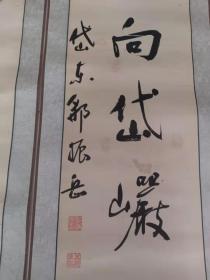 向岱巖
岱东郭振岳